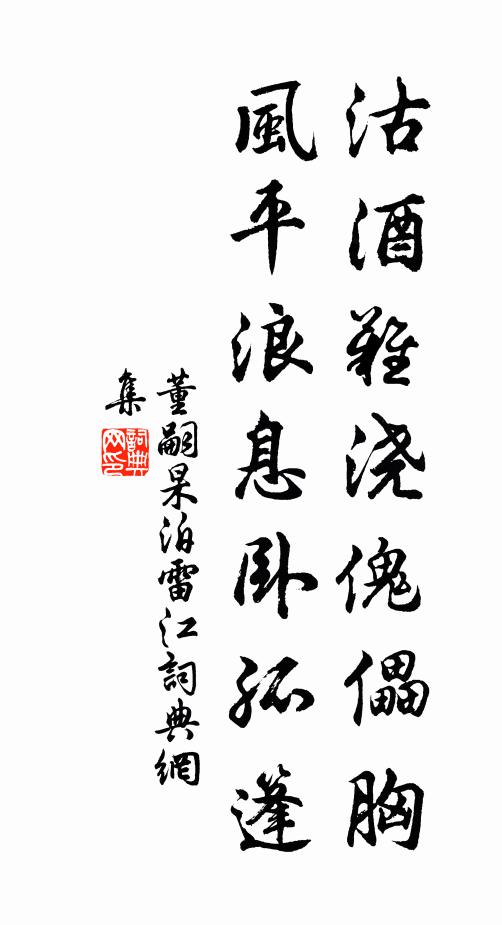 沽酒難浇傀儡胸
風平浪息卧孤篷
董嗣杲泊雷江詞典網
集
詞典
网印